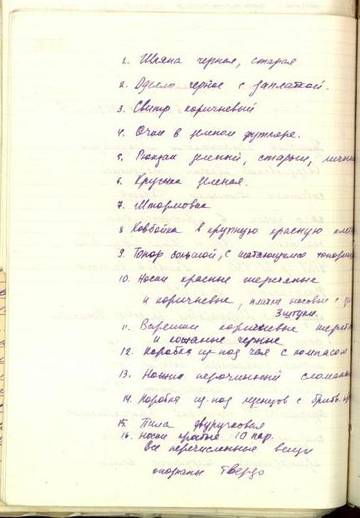 1. Шляпа черная, старая
2. Одеяло черное с заплаткой.
3. Свитр коричневый
4. Очки в зеленом футляре.
5. Рюкзак зеленый, старый,
6. Кружка зеленая.
7. Штормовка
8. Ковбойка в крупную красную
9. Топор большой, с
10. Носки красные шерстяные
и коричневые, платки носовые с
3 штуки.
11. Варешки коричневые
и кожаные черные
12. Коробка из-под чая с компасом
13. Ножик перочинный
14. Коробка из-под
15. Пила двуручковая
16. носки простые 10 пар.
Все перечисленные вещи
опознаны твердо